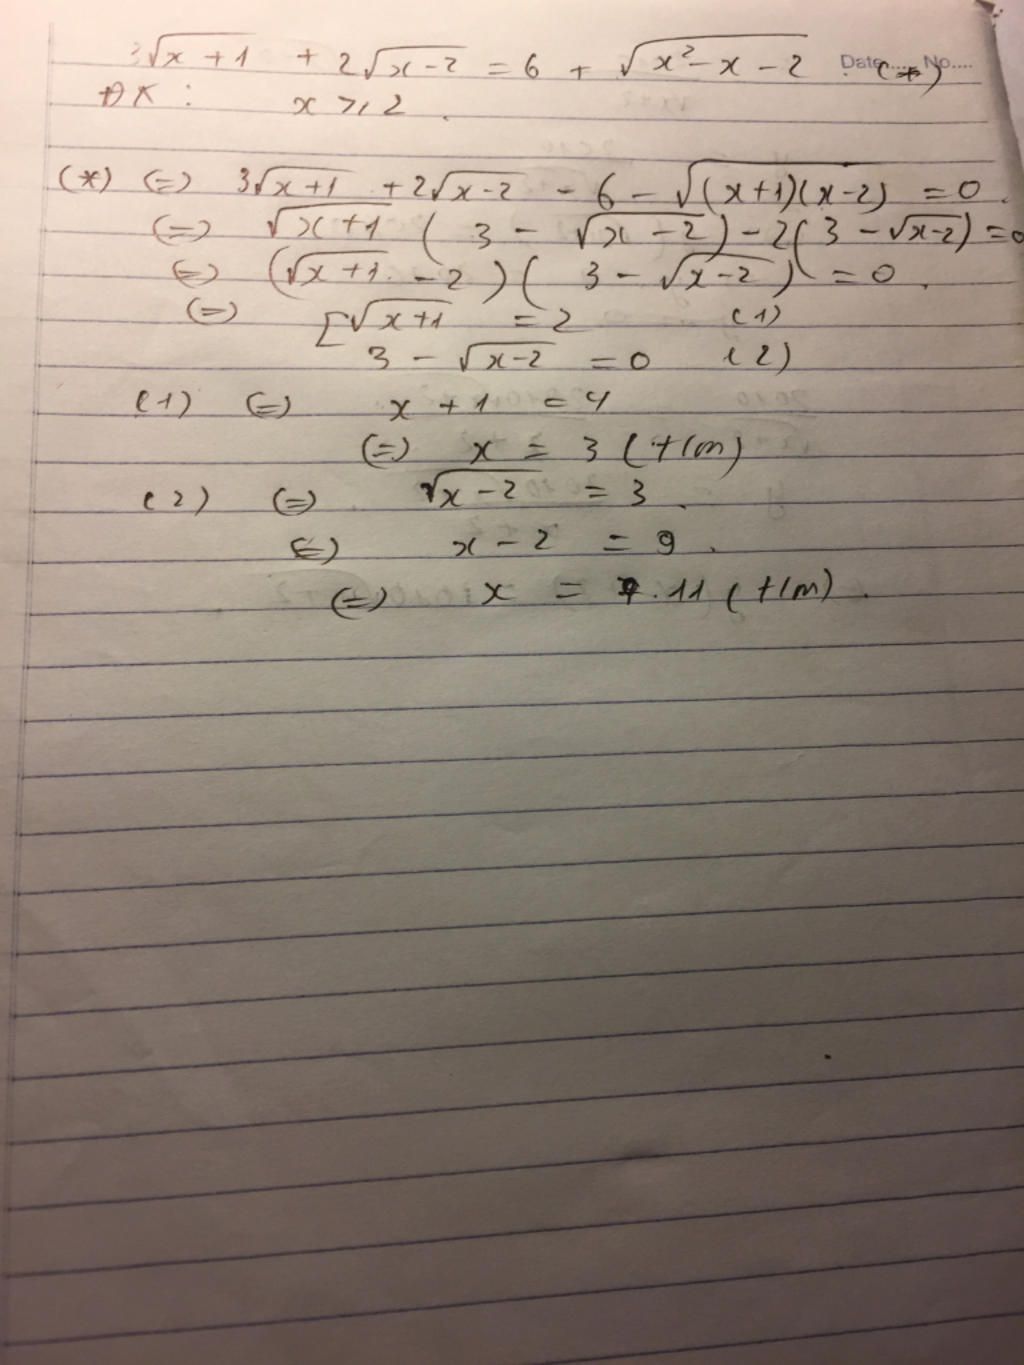 3√x+1 + 2√x-2 = 6 + √x²-x-2 (*)
Date..... No....
ĐK : x ≥ 2 .
(*) (=) 3√x+1 + 2√x-2 - 6 - √(x+1)(x-2) = 0.
(=) √x+1 ( 3 - √x-2 ) - 2( 3 - √x-2 ) = 0
(=) (√x+1 - 2 ) ( 3 - √x-2 ) = 0 .
(=) [ √x+1 = 2 (1)
3 - √x-2 = 0 (2)
(1) (=) x + 1 = 4
(=) x = 3 ( t/m)
(2) (=) √x-2 = 3 .
(=) x - 2 = 9 .
(=) x = 11 ( t/m) .